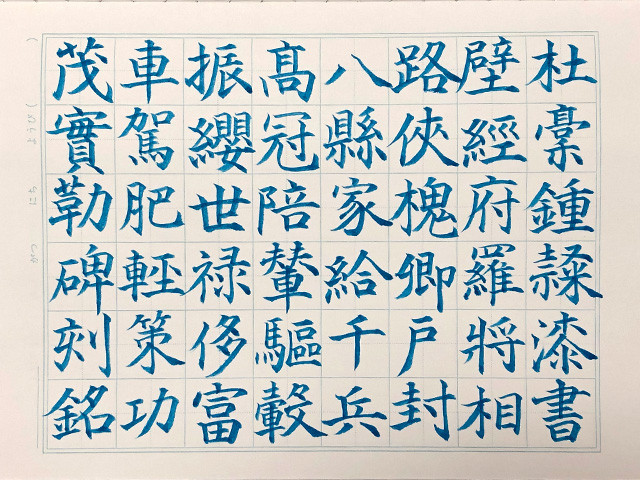 杜稾鍾隸漆書
壁經府羅將相
路俠槐卿戸封
八縣家給千兵
髙冠陪輦驅轂
振纓世禄侈富
車駕肥輕策功
茂實勒碑刻銘